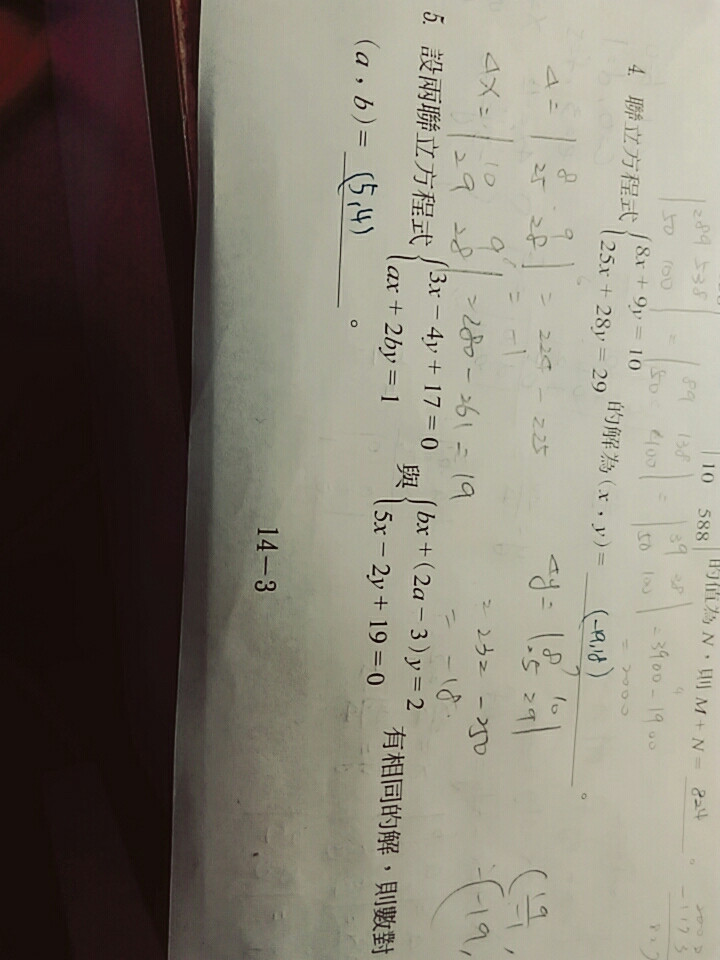 |289 538|
|50 100| = |89 138|
|10 588| 的值為 N,則 M + N = 824 。
= 3900 - 1900
= 2000
4. 聯立方程式 {8x + 9y = 10
25x + 28y = 29 的解為 (x , y) = (-19,18) 。
Δ = |8 9|
|25 28| = 224 - 225
= -1
Δx = |10 9|
|29 28| = 280 - 261 = 19
Δy = |8 10|
|25 29|
= 232 - 250
= -18
5. 設兩聯立方程式 {3x - 4y + 17 = 0
ax + 2by = 1 與 {bx + (2a - 3)y = 2
5x - 2y + 19 = 0 有相同的解,則數對
(a , b) = (5,4) 。
14-3